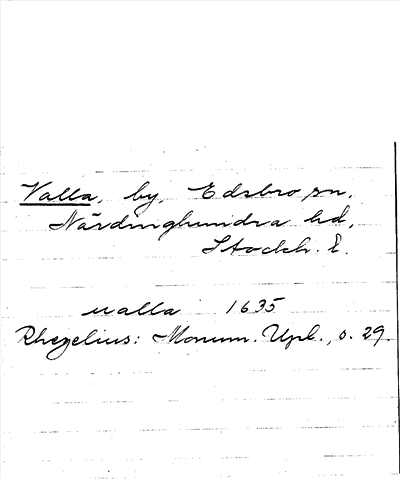 Valla, by, Edsbro sn,
Närdinghundra hd,
Stockh. l.
ualla 1635
Rhezelius: Monum. Upl., s. 29.